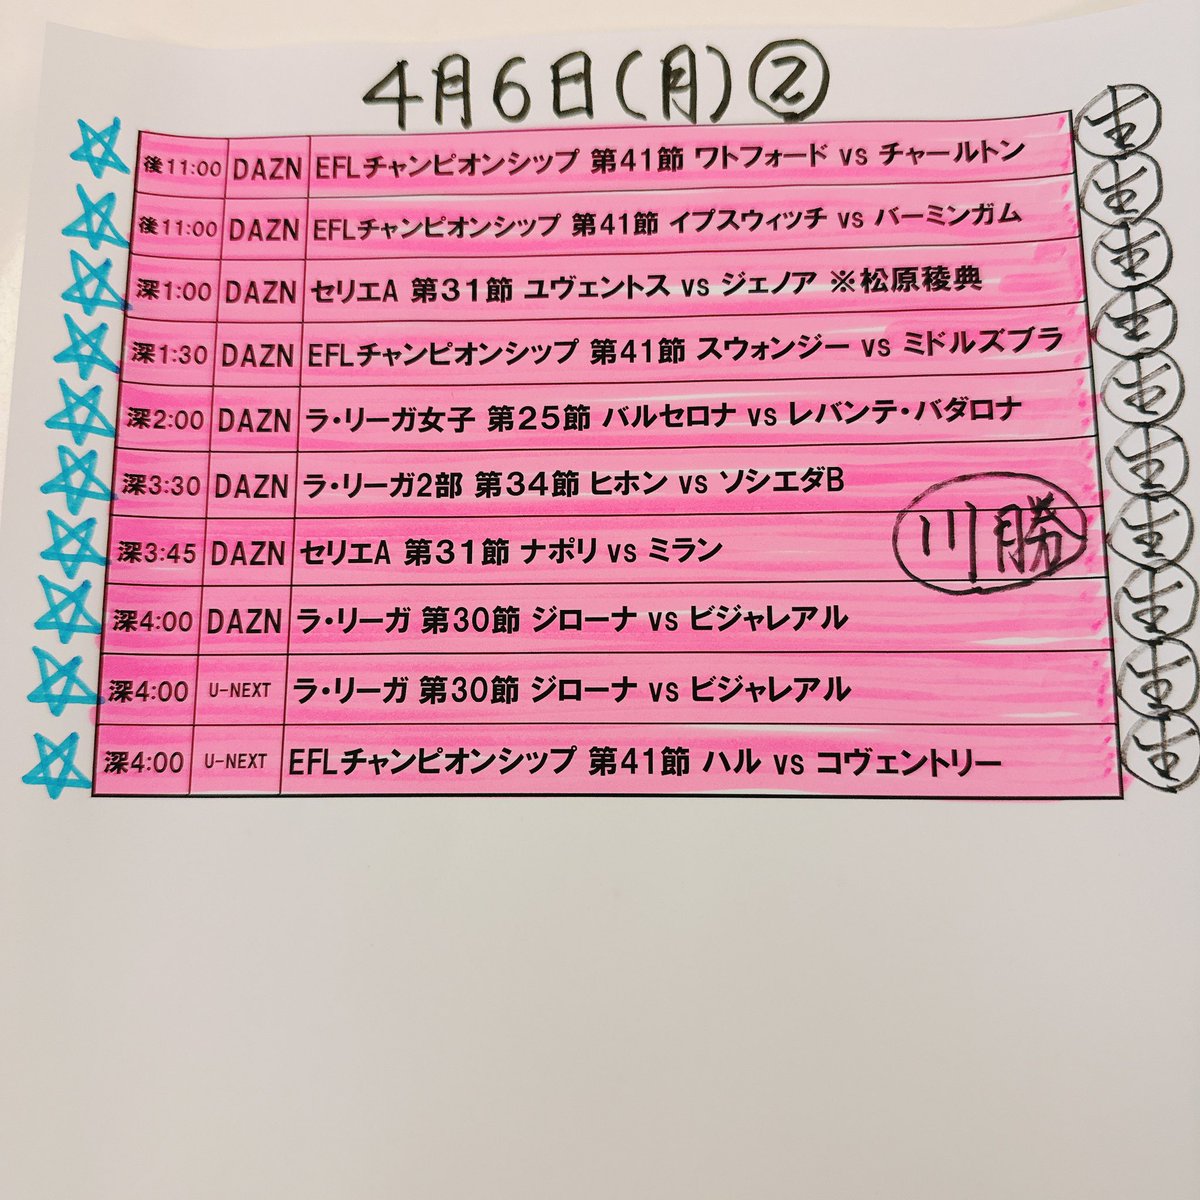 4月6日(月)②
後11:00 DAZN EFLチャンピオンシップ 第41節 ワトフォード vs チャールトン 生
後11:00 DAZN EFLチャンピオンシップ 第41節 イプスウィッチ vs バーミンガム 生
深1:00 DAZN セリエA 第31節 ユヴェントス vs ジェノア ※松原稜典 生
深1:30 DAZN EFLチャンピオンシップ 第41節 スウォンジー vs ミドルズブラ 生
深2:00 DAZN ラ・リーガ女子 第25節 バルセロナ vs レバンテ・バダロナ 生
深3:30 DAZN ラ・リーガ2部 第34節 ヒホン vs ソシエダB 生
深3:45 DAZN セリエA 第31節 ナポリ vs ミラン 川勝 生
深4:00 DAZN ラ・リーガ 第30節 ジローナ vs ビジャレアル 生
深4:00 U-NEXT ラ・リーガ 第30節 ジローナ vs ビジャレアル 生
深4:00 U-NEXT EFLチャンピオンシップ 第41節 ハル vs コヴェントリー 生